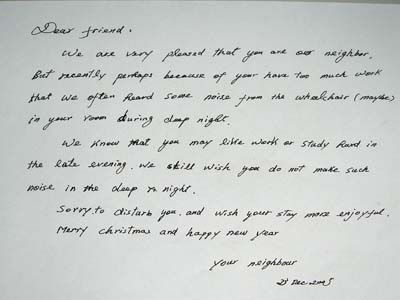 Dear friend.
We are very pleased that you are our neighbor.
But recently perhaps because of your have too much work
that we often heard some noise from the wheelchair (maybe)
in your room during deep night.
We know that you may like work or study hard in
the late evening. We still wish you do not make such
noise in the deep night.
Sorry to disturb you. and wish your stay more enjoyful.
Merry christmas and happy new year
your neighbour
Dec. 2005